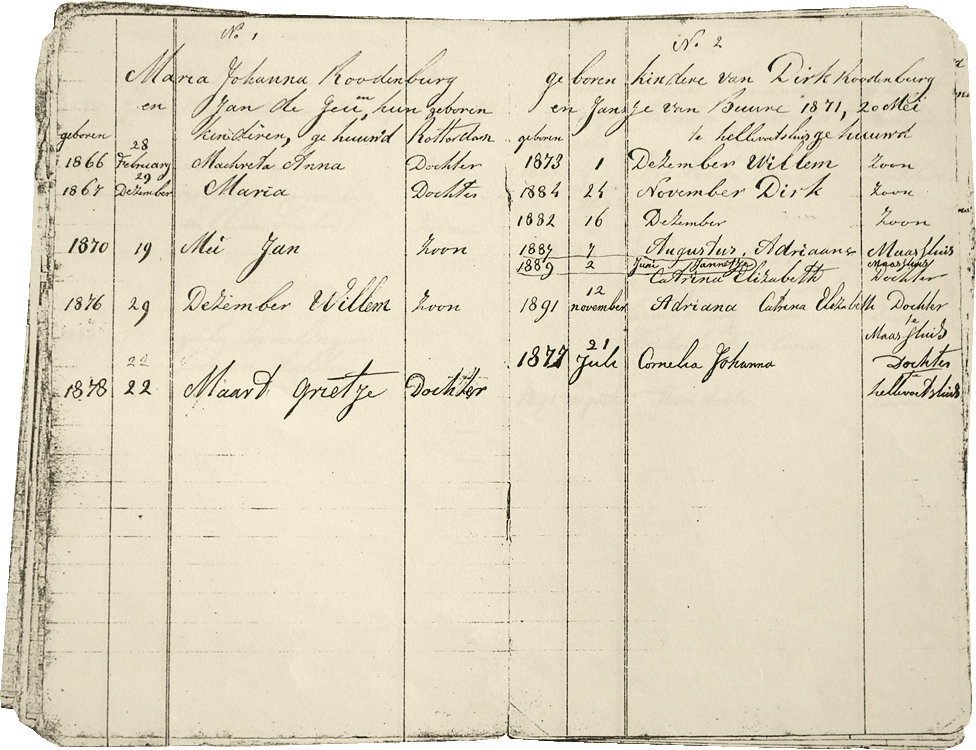 No 1
Maria Johanna Roodenburg
en Jan de Geu, hun geboren
geboren kinderen, ge huuwd Rotterdam
28
1866 February Machreta Anna Dochter
29
1867 Dezember Maria Dochter
1870 19 Mei Jan Zoon
1876 29 Dezember Willem Zoon
22
1878 22 Maart Grietje Dochter
No 2
ge boren kindere van Dirk Roodenburg
en Jansje van Buure 1871, 20 Mei
geboren te hellevoetsluis ge huuwd
1873 1 Dezember Willem Zoon
1884 24 November Dirk Zoon
1882 16 Dezember Zoon
1887 7 Augustus. Adriaan Maassluis
1889 2 Juni Jannetje Maassluis
Catrina Elizabeth Dochter
12
1891 november Adriana Catrina Elizabeth Dochter
te
Maassluis
21
1877 Juli Cornelia Johanna Dochter
hellevoetsluis